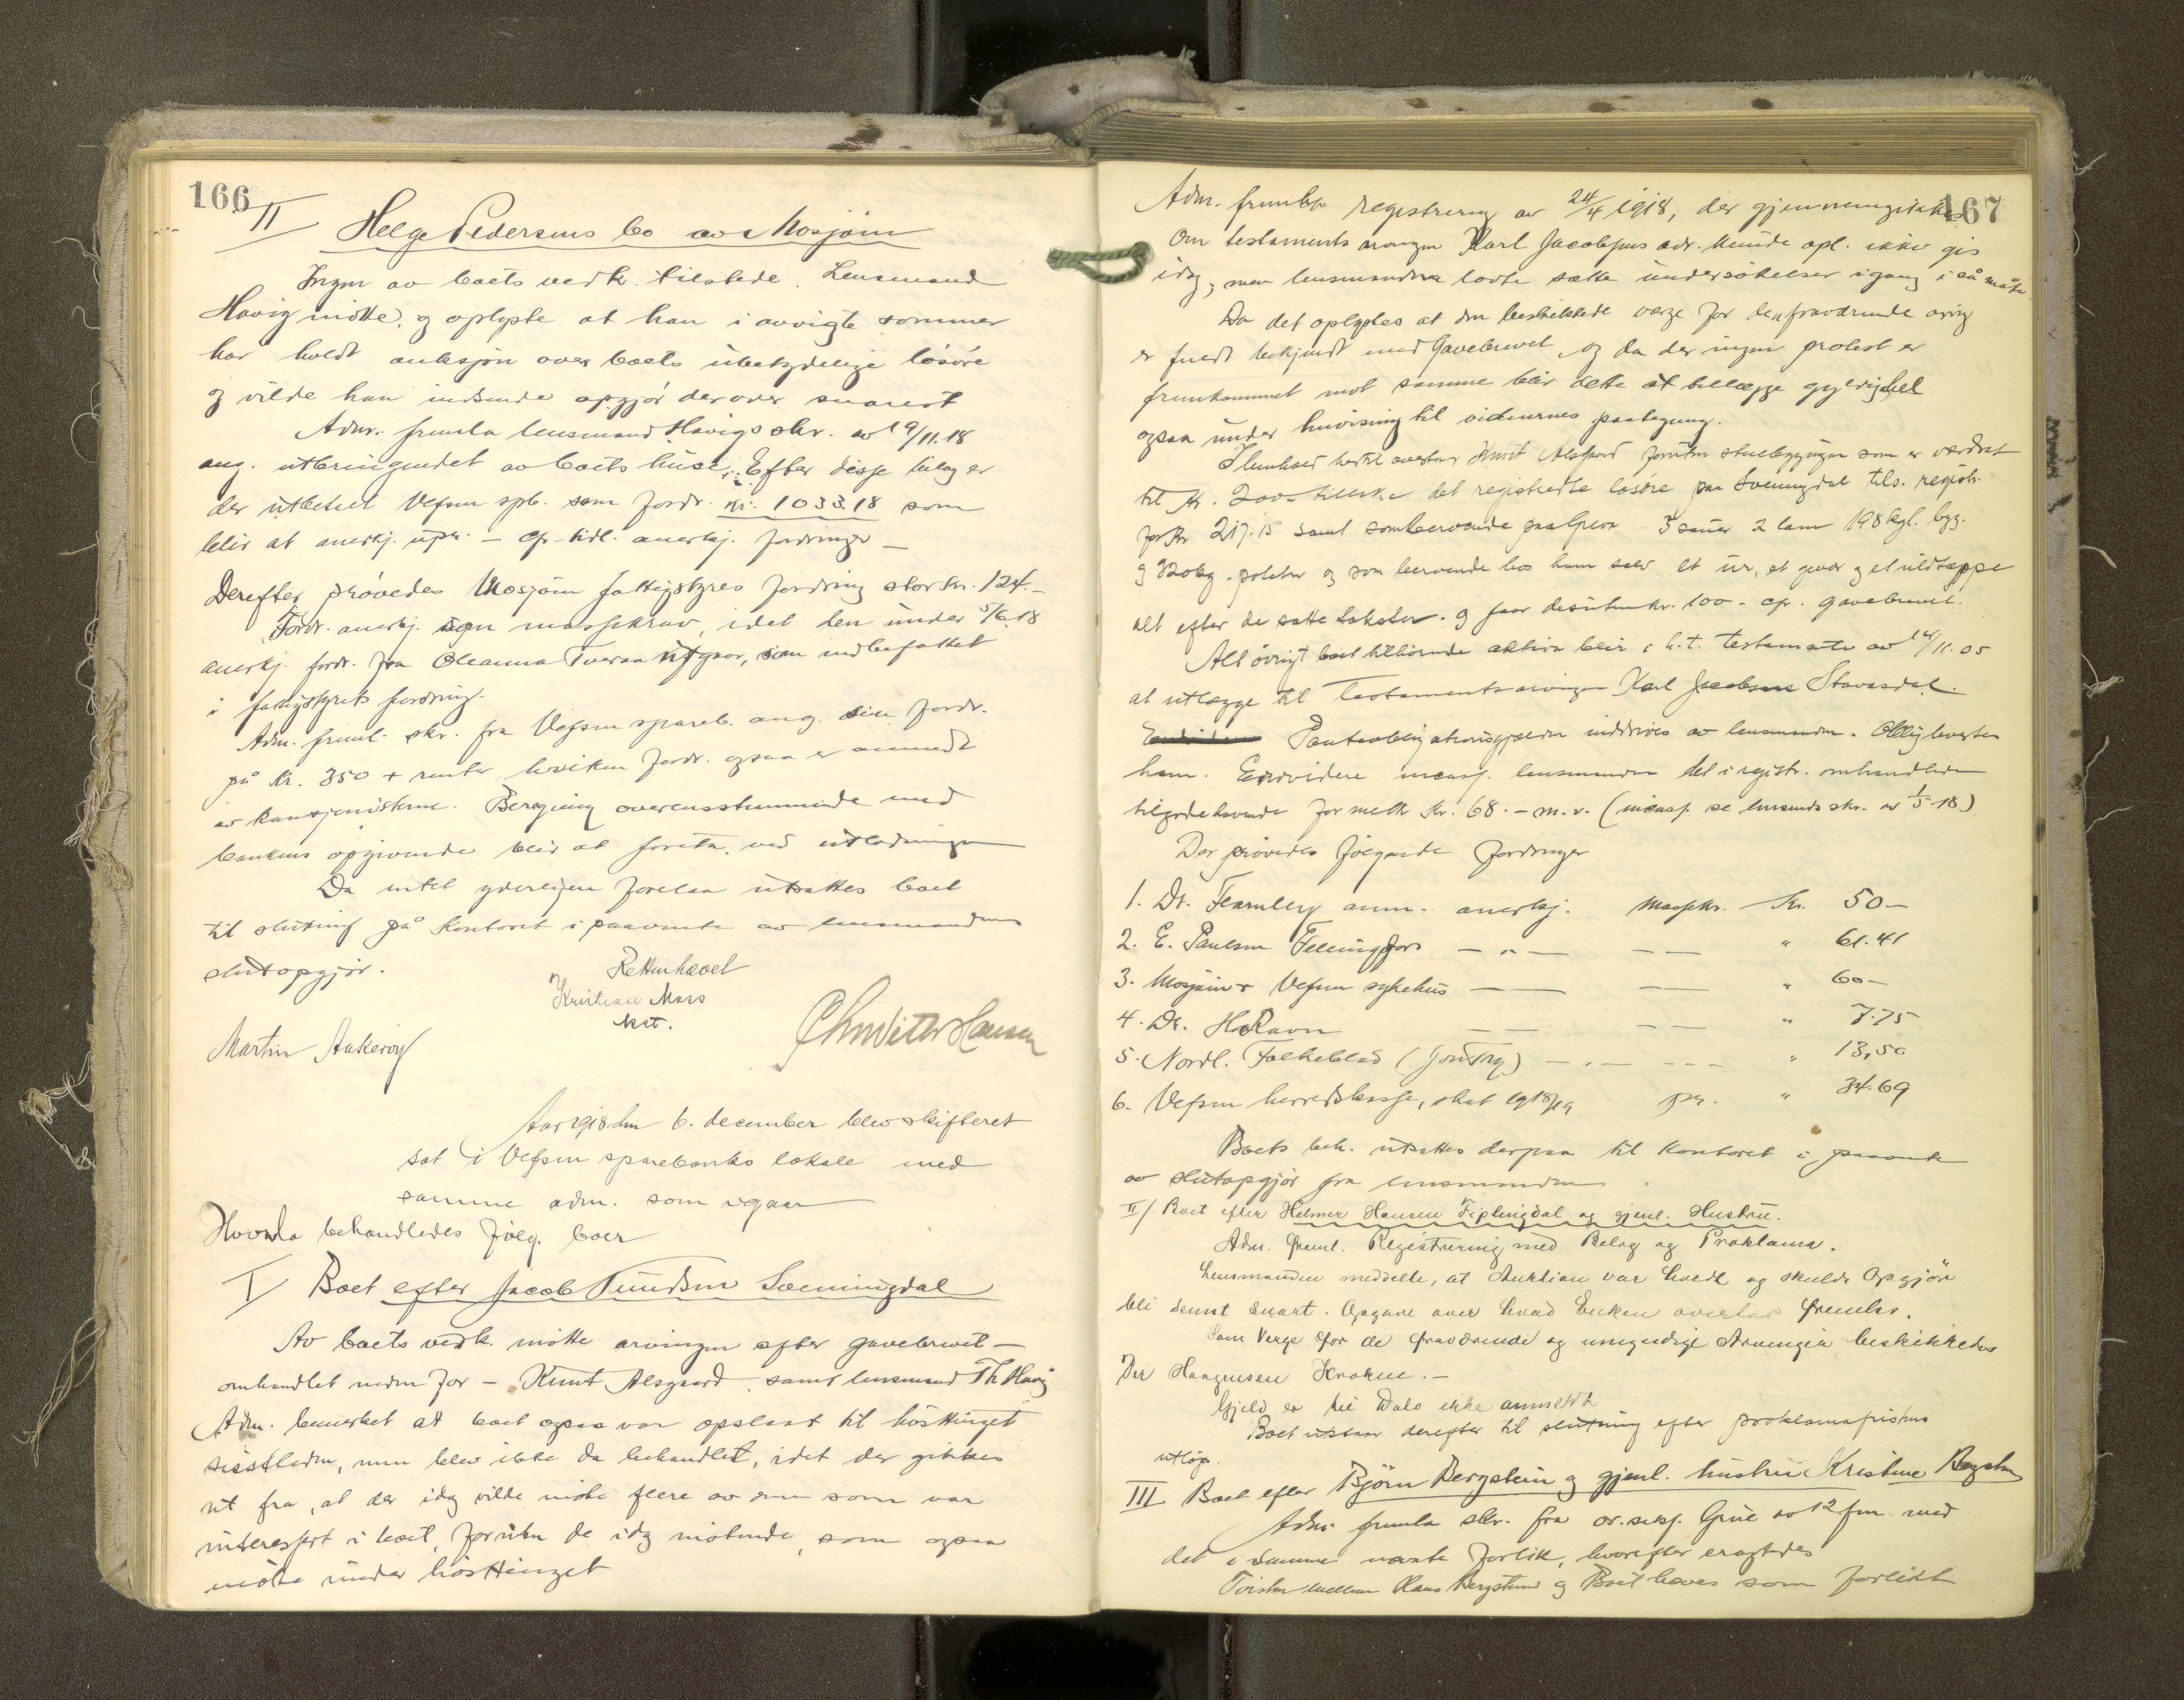 166
II Helge Pedersens bo av Mosjøen
Ingen av boets vedk. tilstede. Lensmand
Havig møtte og oplyste at han i avvigte sommer
har holdt auksjon over boets ubetydelige løsøre
og vilde han indsende opgjør derover snarest
Adm. fremla lensmand Havigs skr. av 19/11.18
ang. utbringendet av boets huse. Efter disse bilag er
der utbetalt Vefsn spb. som fordr. kr. 1033.18 som
blir at anerkj. upr. – cfr tidl. anerkj. fordringer –
Derefter prøvedes Mosjøen fattigstyres fordring stor kr. 124.–
Fordr. anerkj. som massekrav, idet den under 5/6.18
anerkj. fordr. fra Oleanna Tveraa utgaar, som indbefattet
i fattigstyrets fordring.
Adm. freml. skr. fra Vefsn spareb. ang. sin fordr.
på kr. 350 + renter hvilken fordr. ogsaa er anmeldt
av kausjonisterne. Beregning overensstemmende med
bankens opgivende blir at foreta ved utlodningen
Da intet yderligere forelaa utsattes boet
til slutning på kontoret i paavente av lensmandens
slutopgjør.
Retten hævet
Kristian Moss
kst.
Martin Aakerøy
Chr Witter Hansen
Aar 1918 den 6. december blev skifteret
sat i Vefsn sparebanks lokale med
samme adm. som igaar
Hvorda behandledes følg. boer
I Boet efter Jacob Knudsen Svenningdal
Av boets vedk. møtte arvingen efter gavebrevet –
omhandlet neden for – Knut Alsgaard samt lensmand Th Havig
Adm. bemerket at boet ogsaa var opslaat til høsttinget
sidstleden, men blev ikke da behandlet, idet der gikkes
ut fra, at der idag vilde møte flere av dem som var
interessert i boet, foruten de idag møtende, som ogsaa
møtte under høsttinget
167
Adm. fremla registrering av 24/4 1918, der gjennemgikkes
Om testamentsarvingen Karl Jacobsens adr. kunde opl. ikke gis
idag, men lensmanden lovte sætte undersøkelser igang i så måte.
Da det oplystes at den beskikkede verge for den fraværende arving
er fuldt bekjendt med gavebrevet, og da der ingen protest er
fremkommet mot samme blir dette at tillægge gyldighet
ogsaa under henvisning til vidnernes paategning.
I henhold hertil overtar Knut Alsgaard foruten stuebygningen som er værdsat
til kr. 200– tillike det registrerte løsøre paa Svenningdal tils. registr.
for kr 217.15 samt som beroende paa 5 sauer 2 lam 198 kgl. byg.
g 320 kg. poteter og som beroende hos ham selv et ur, et gevær og et uldtæppe
alt efter de satte takster. og faar desuten kr. 100.– cfr. gavebrevet.
Alt øvrigt boet tilhørende aktiva blir i h.t. testamente av 14/11.05
at utlægge til testamentsarvingen Karl Jacobsen Stavasdal.
Panteobligationsgjælden inddrives av lensmanden. Obligh
ham. Endvidere incass. lensmanden det i registr. omhandlede
tilgodehavende for melk kr. 68.– m.v. (incass. se lensmds skr. av 1/5 18)
Der prøvedes følgende fordringer
1. Dr. Fearnley anm. anerkj. massekr. Kr. 50–
2. E. Paulsen Fellingfors – " – – – " 61.41
3. Mosjøen & Vefsn sykehus – – – – " 60–
4. Dr. H. Ravn – – – – " 7.75
5. Nordl. Folkeblad – " – – – – " 13,50
6. Vefsn herredskasse, skat 1918/19 pr. " 34.69
Boets beh. utsattes derpaa til kontoret i paavente
av slutopgjør fra lensmanden.
II/ Boet efter Helmer Hansen Fiplingdal og gjenl. Hustru.
Adm. freml. Registrering med Bilag og Proklama.
Lensmanden meddelte, at Auktion var holdt og skulde Opgjør
bli sendt snart. Opgave over hvad Enken overtar fremlas.
Som Verge for de fraværende og umyndige Arvinger beskikkedes
Per Haagensen Kroken.–
Gjeld er til Dato ikke anmeldt
Boet utstaar derefter til slutning efter proklamafristens
utløp.
III Boet efter Bjørn Bergstein og gjenl. hustru Kristine Bergstn
Adm. fremla skr. fra or.sakf. Grue av 12 fm. med
det i samme nævnte forlik, hvorefter eragtedes
Tvisten mellem Hans Bergstein og Boet hæves som forlikt